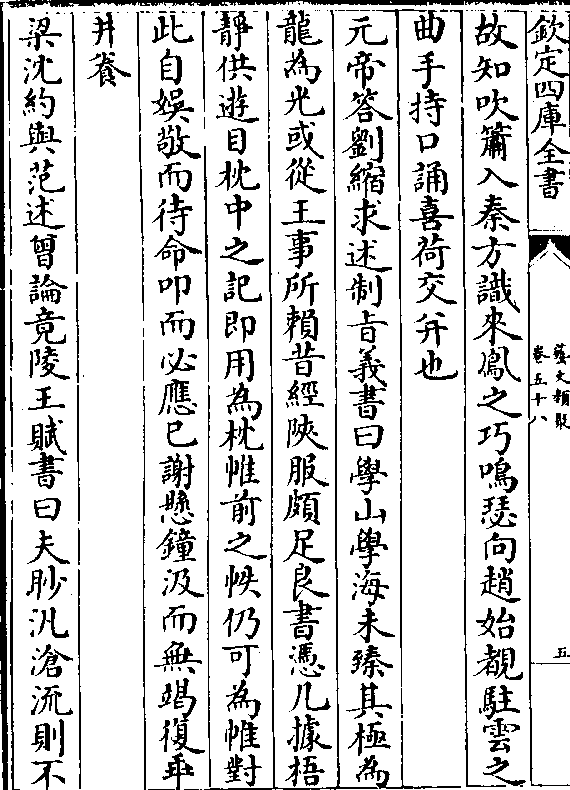 欽定四庫全書
藝文類聚
卷五十八
五
故知吹簫入秦方識來鳳之巧鳴瑟向趙始覩駐雲之
曲手持口誦喜荷交并也
元帝答劉縮求述制旨義書曰學山學海未臻其極為
龍為光或從王事所賴昔經陝服頗足良書憑几據梧
靜供遊目枕中之記即用為枕帷前之帙仍可為帷對
此自娛敬而待命叩而必應已謝懸鐘汲而無竭復乖
井養
梁沈約與范述曾論竟陵王賦書曰夫眇汎滄流則不